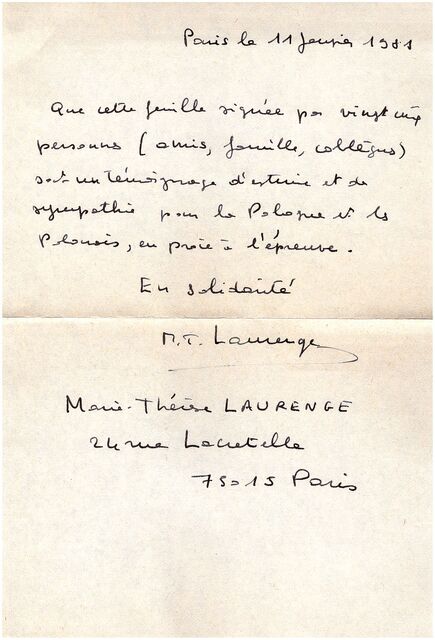 Paris le 11 février 1981
Que cette feuille signée par vingt six
personnes (amis, famille, collègues)
soit un témoignage d'estime et de
sympathie pour la Pologne et les
Polonais, en proie à l'épreuve.
En solidarité
M.T. Laurenge
Marie-Thérèse LAURENGE
24 rue Lacretelle
75015 Paris